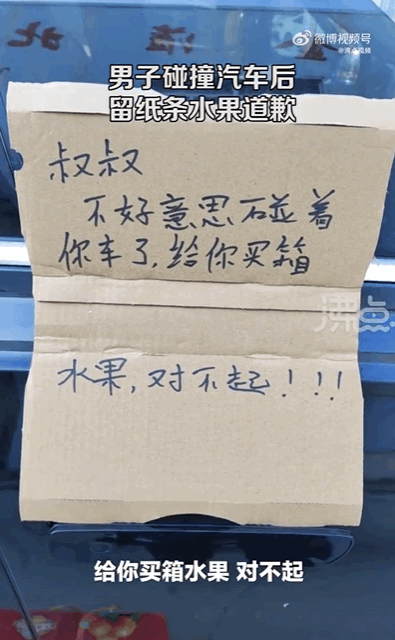 微博视频号
@沸点视频
男子碰撞汽车后
留纸条水果道歉
叔叔
不好意思碰着
你车了,给你买箱
沸点
水果,对不起!!!
给你买箱水果 对不起